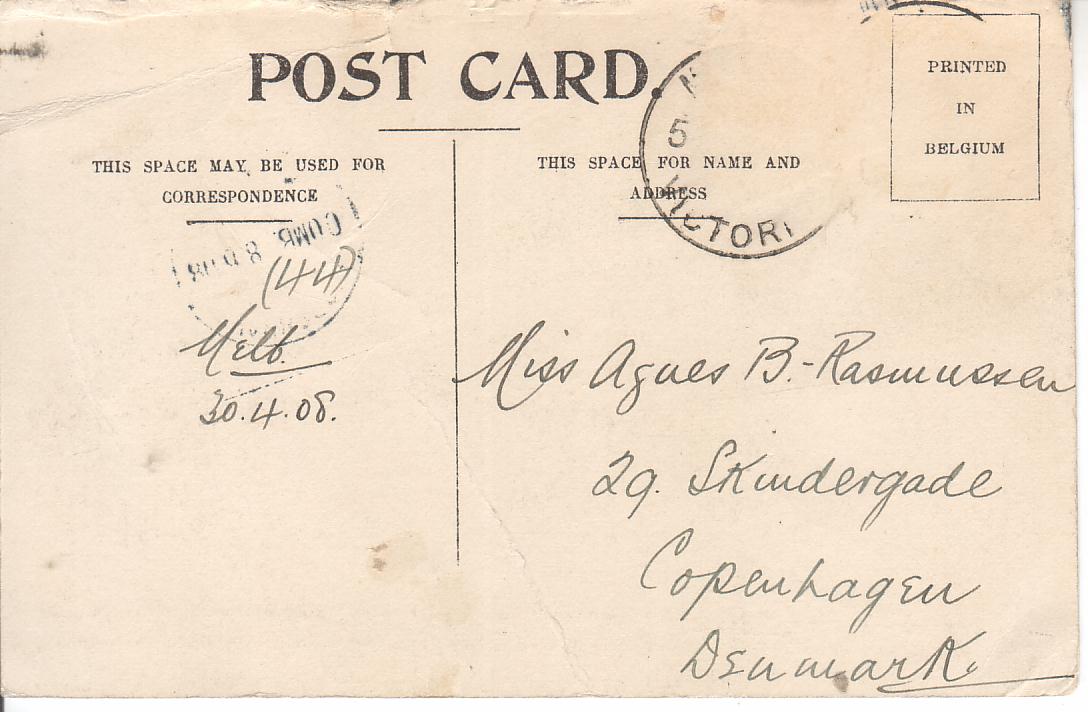 POST CARD.
PRINTED
IN
BELGIUM
THIS SPACE MAY BE USED FOR
CORRESPONDENCE
THIS SPACE FOR NAME AND
ADDRESS
5
VICTORI
1 COMB.
8
(44)
Melb.
30.4.08.
Miss Agnes B.-Rasmussen
29. Skindergade
Copenhagen
Denmark.